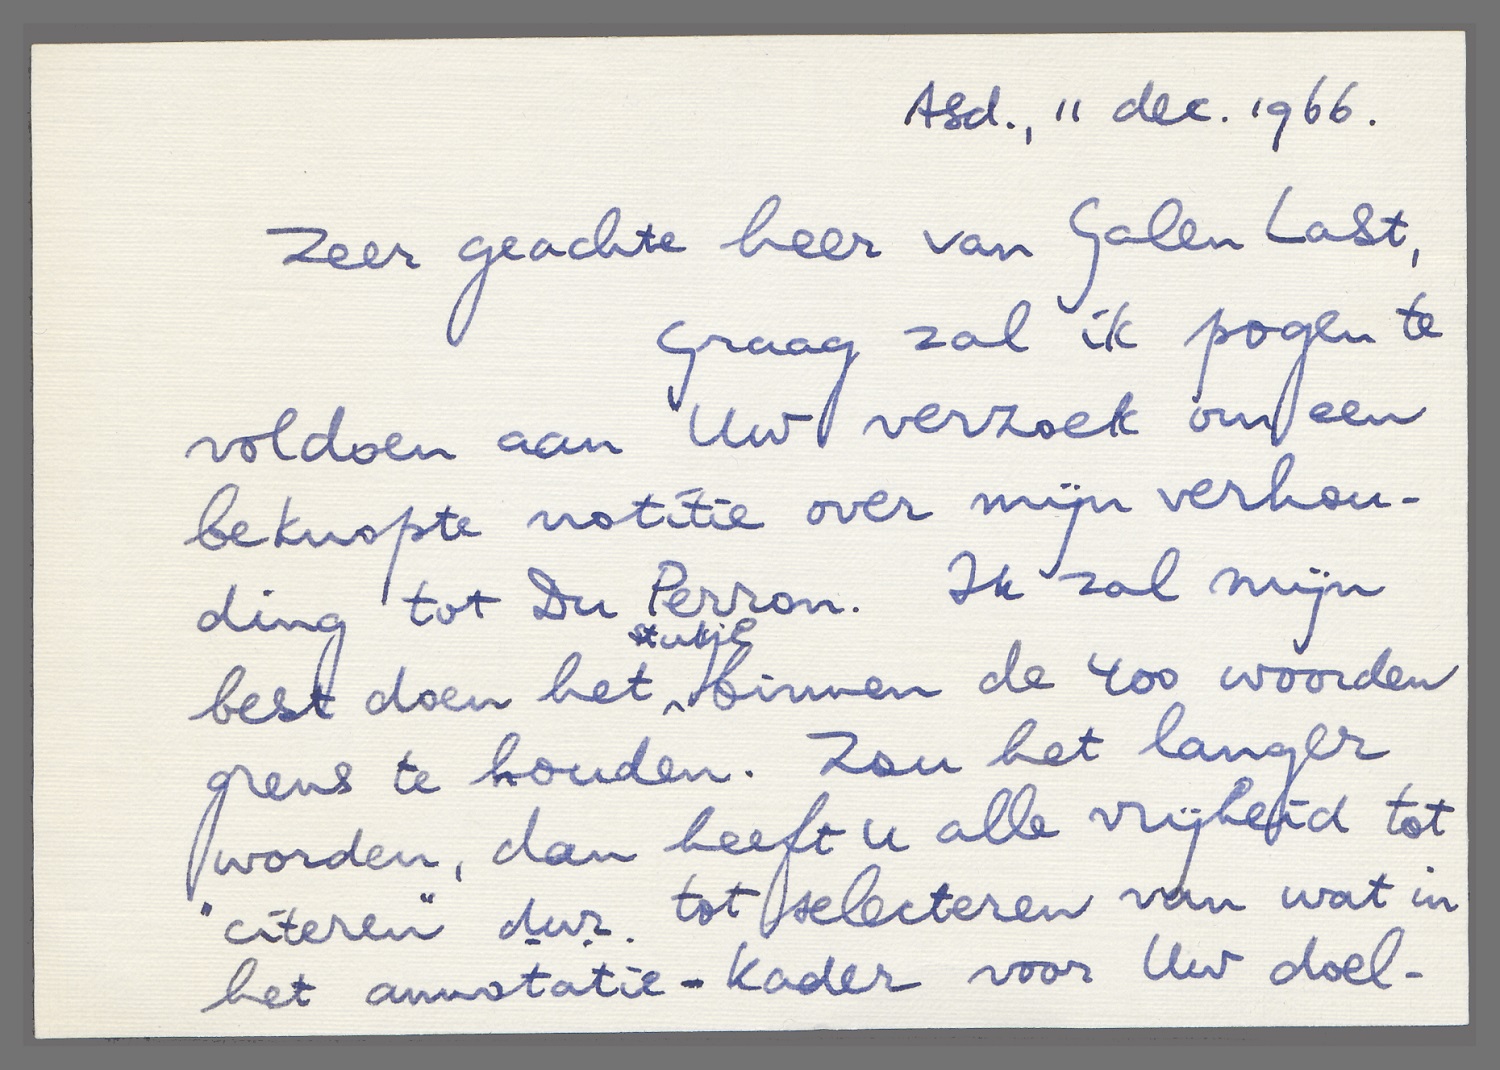 Asd., 11 dec. 1966.
Zeer geachte heer van Galen Last,
Graag zal ik pogen te
voldoen aan Uw verzoek om een
beknopte notitie over mijn verhou-
ding tot Du Perron. Ik zal mijn
stukje
best doen het binnen de 400 woorden
grens te houden. Zou het langer
worden, dan heeft u alle vrijheid tot
"citeren" d.w.z. tot selecteren van wat in
het annotatie-kader voor Uw doel-